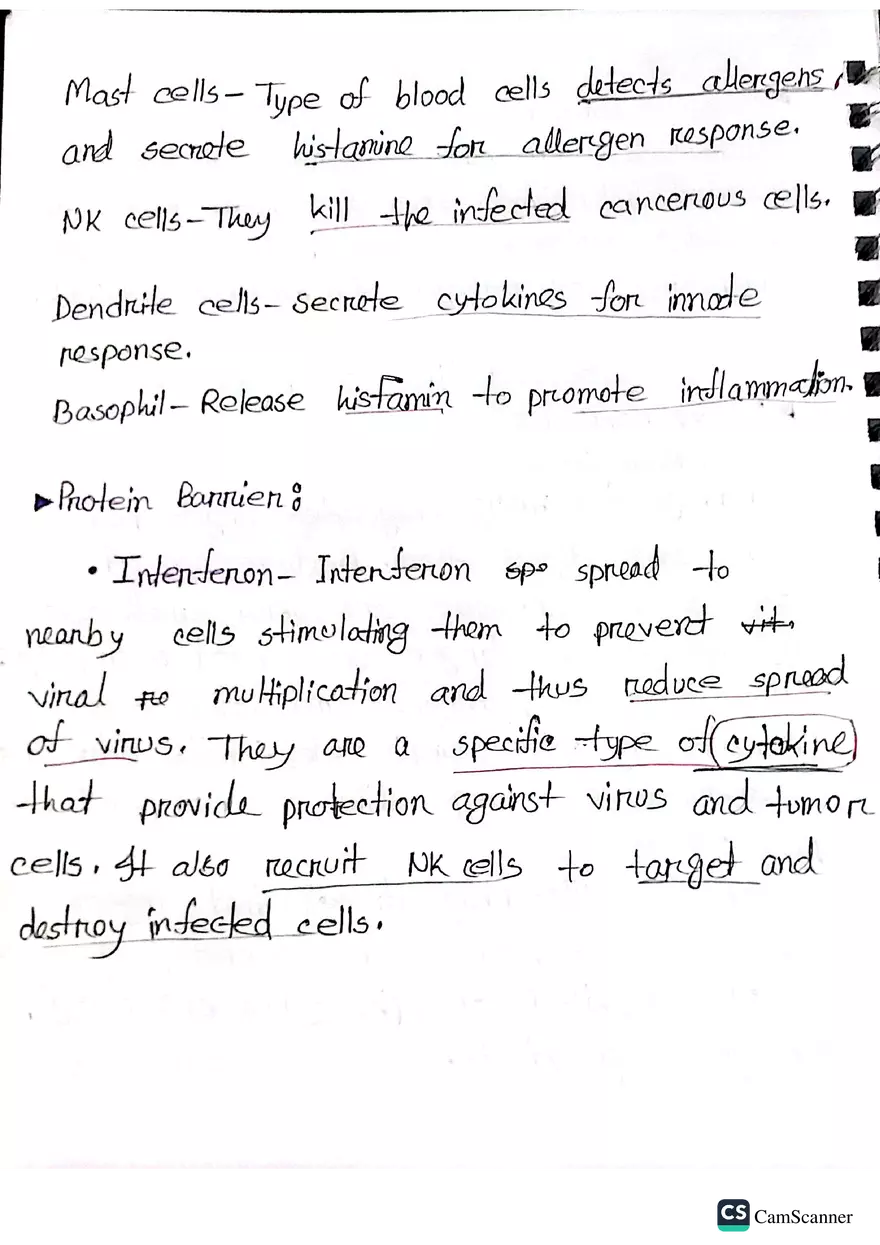 Mast cells - Type of blood cells detects allergens,
and secrete histamine for allergen response.
NK cells - They kill the infected cancerous cells.
Dendrite cells - secrete cytokines for innate
response.
Basophil - Release histamin to promote inflammation.
► Protein Barrier:
• Interferon - Interferon spo spread to
nearby cells stimulating them to prevent vit
viral multiplication and thus reduce spread
of virus. They are a specific type of (cytokine)
that provide protection against virus and tumor
cells. It also recruit NK cells to target and
destroy infected cells.
CS CamScanner